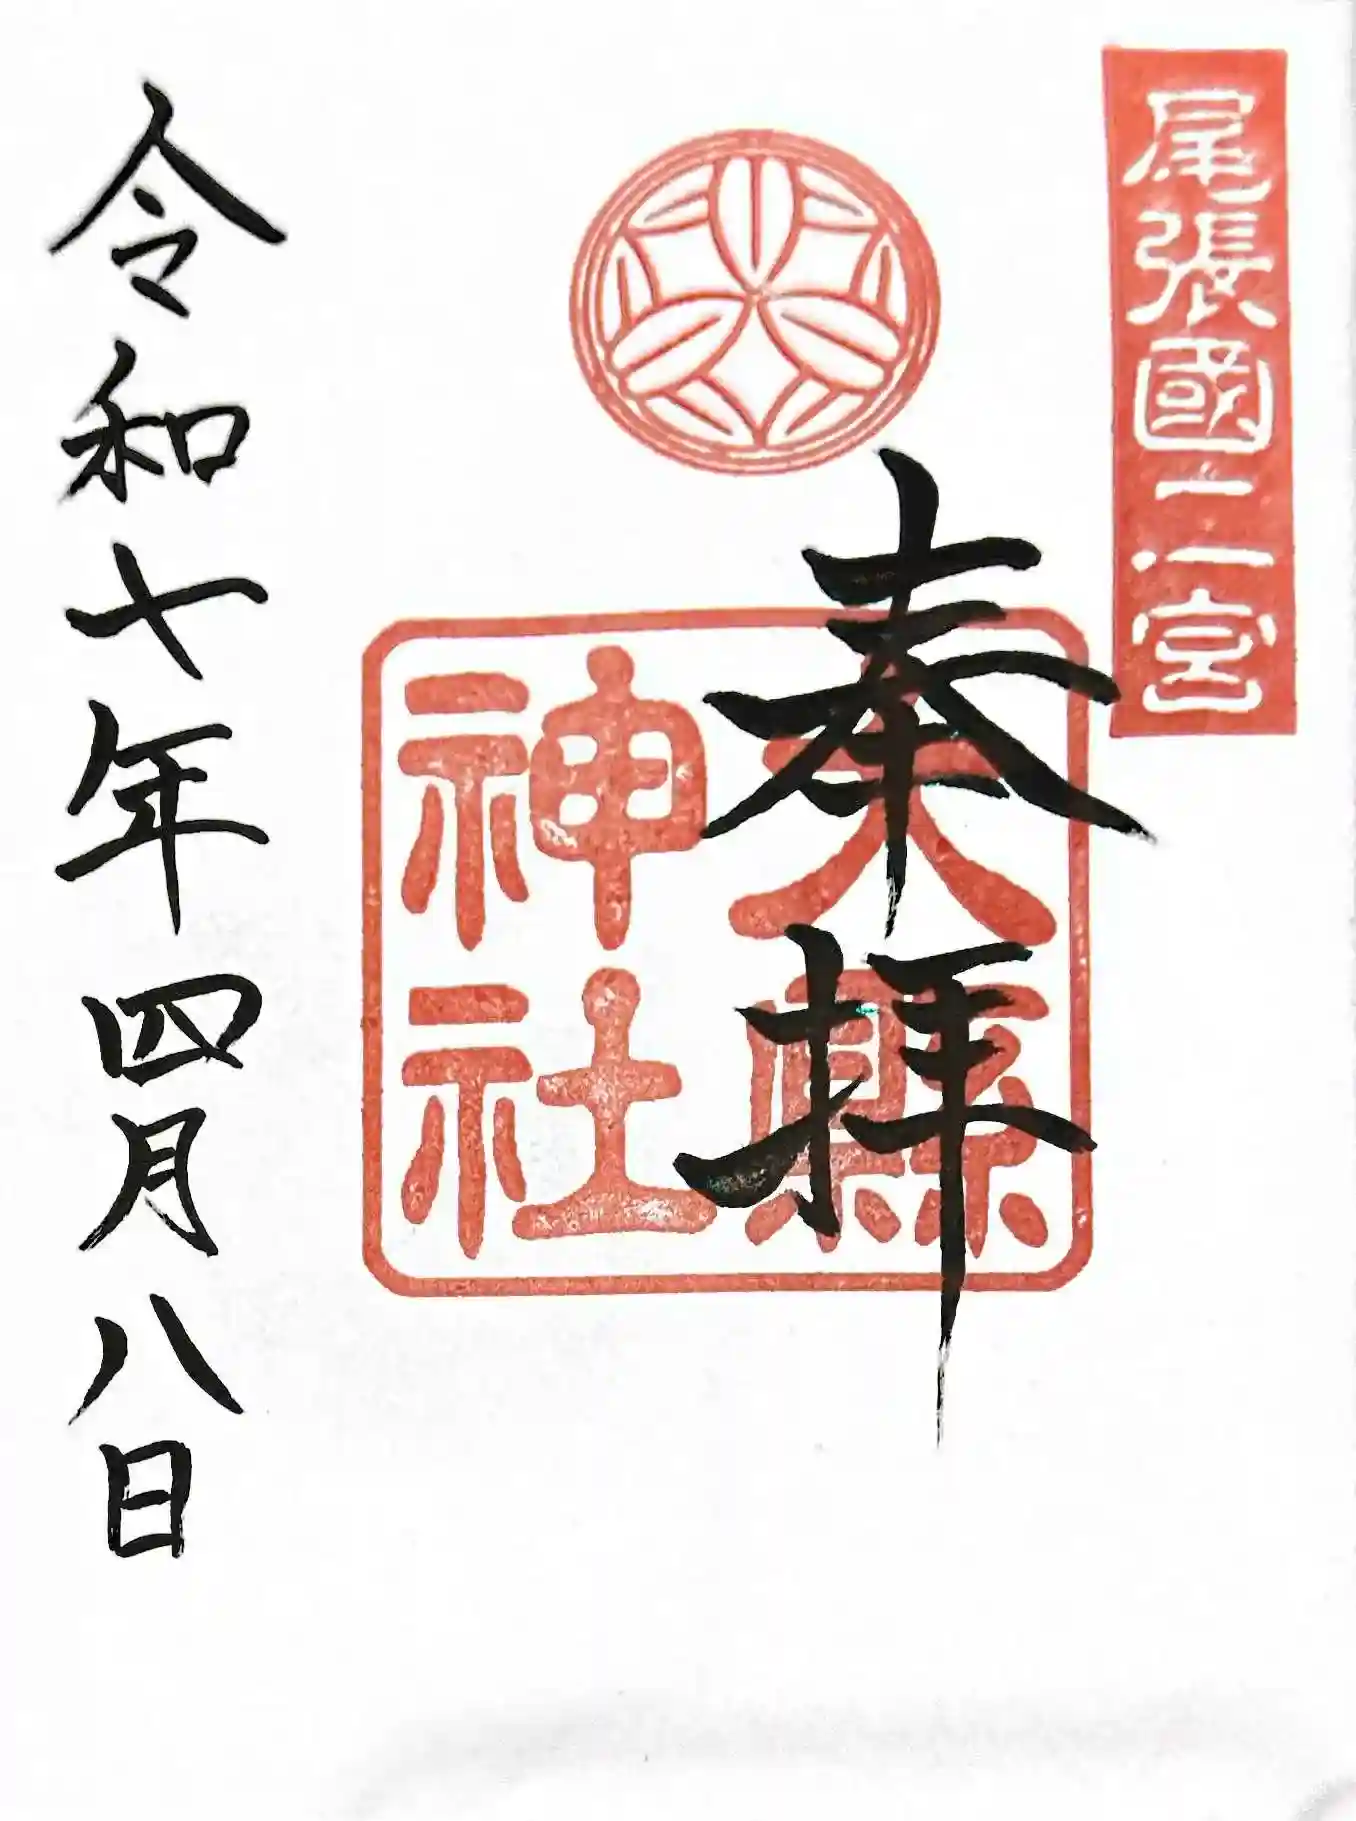 尾張國二宮
奉拝
大縣
神社
令和七年四月八日